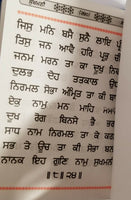 ਸੁਖਮਨੀ
ਜਿਸੁ ਮਨਿ ਬਸੈ ਸੁਨੈ ਲਾਇ ਪ੍ਰੀਤਿ
ਤਿਸੁ ਜਨ ਆਵੈ ਹਰਿ ਪ੍ਰਭੁ ਚੀਤਿ
ਜਨਮ ਮਰਨ ਤਾ ਕਾ ਦੂਖੁ
ਦੁਲਭ ਦੇਹ ਤਤਕਾਲ
ਨਿਰਮਲ ਸੋਭਾ ਅੰਮ੍ਰਿਤ ਤਾ ਕੀ
ਏਕੁ ਨਾਮੁ ਮਨ ਮਾਹਿ
ਦੂਖ ਰੋਗ ਬਿਨਸੇ ਭੈ
ਸਾਧ ਨਾਮ ਨਿਰਮਲ ਤਾ ਕੇ
ਸਭ ਤੇ ਊਚ ਤਾ ਕੀ ਸੋਭਾ ਬਨੀ
ਨਾਨਕ ਇਹ ਗੁਣਿ ਨਾਮੁ ਸੁਖਮਨੀ
॥੮॥੨੪॥